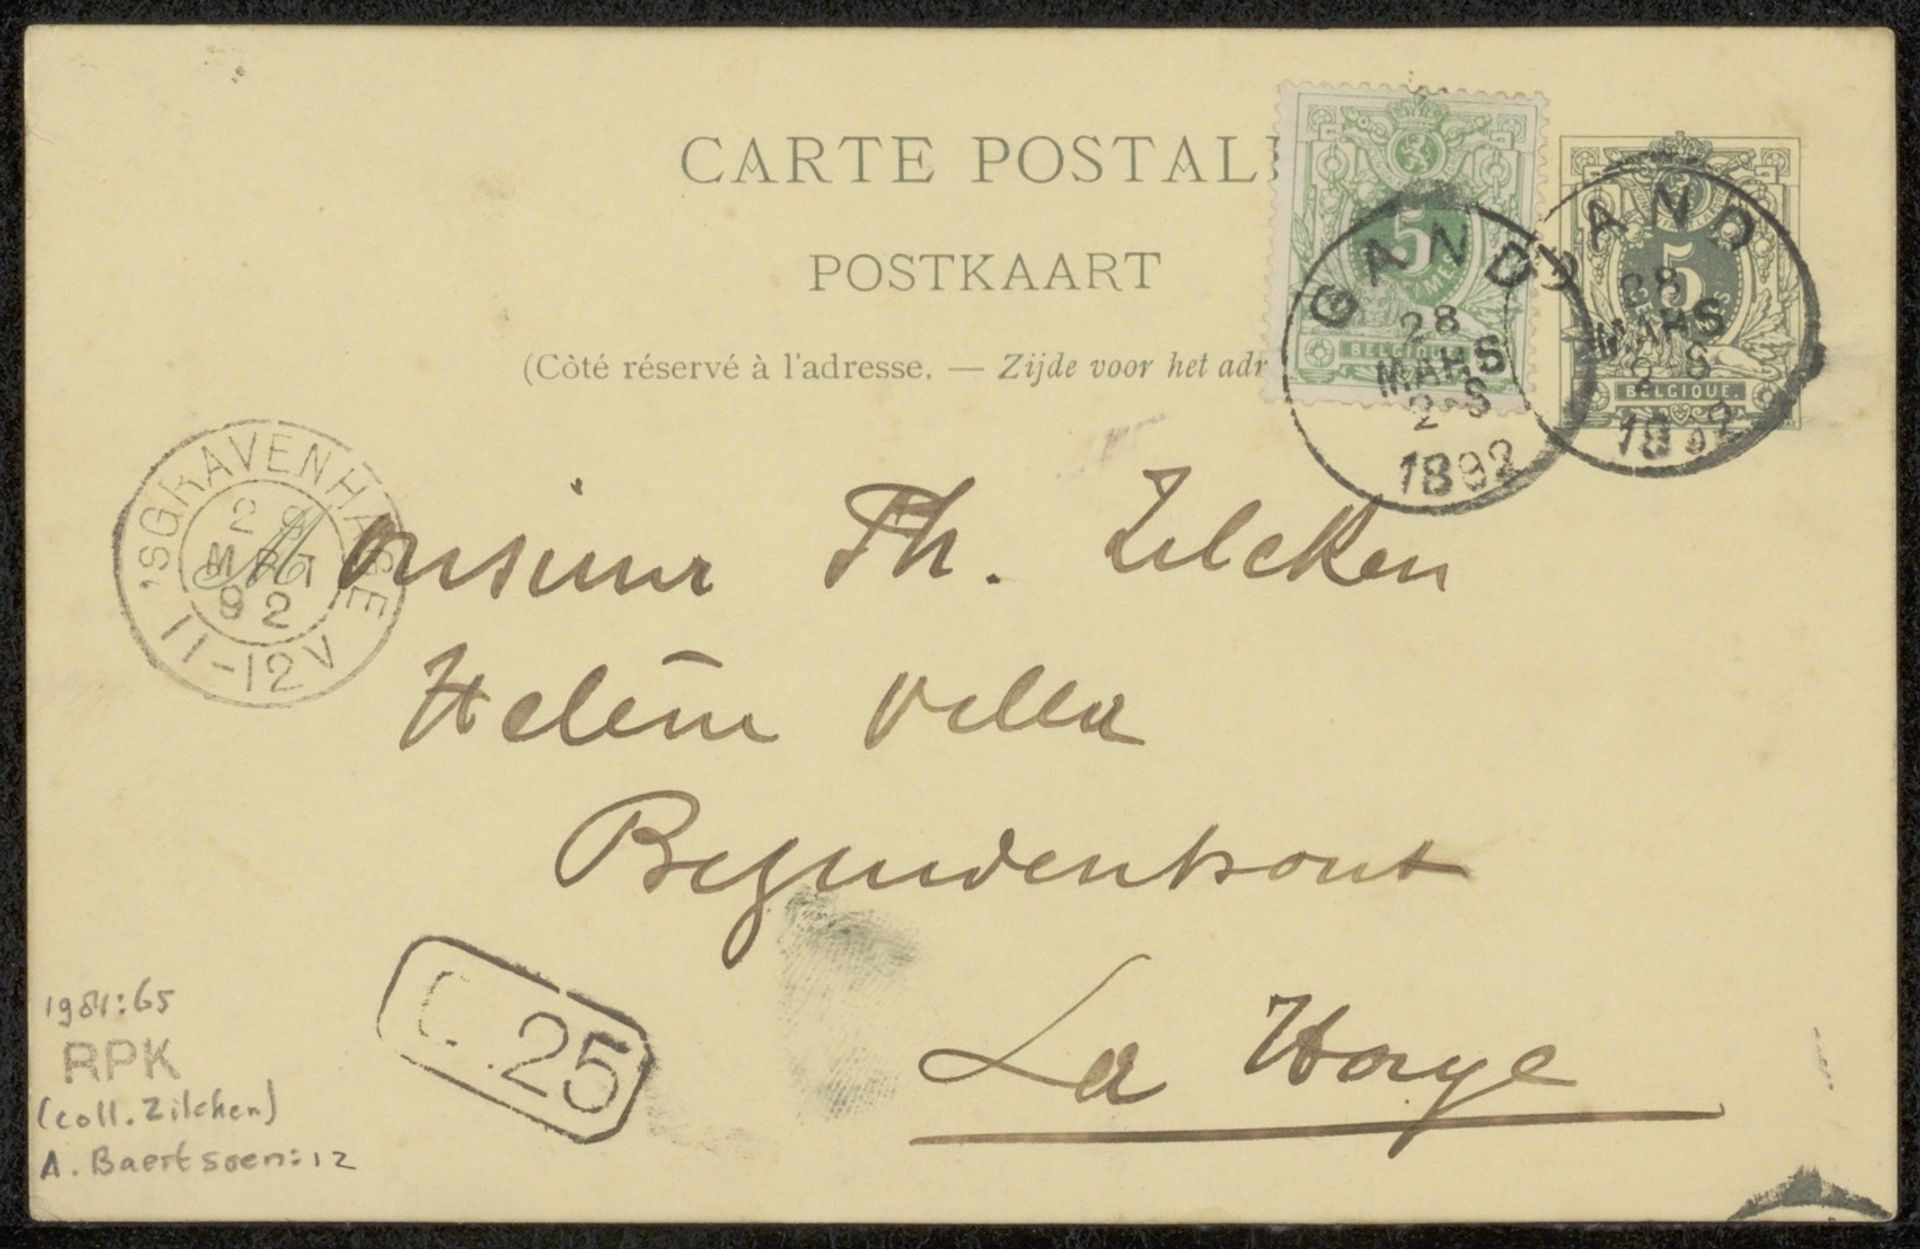 CARTE POSTAL
POSTKAART
(Côté réservé à l'adresse. — Zijde voor het adr
5
BELGIQUE
GAND
28
MARS
2-S
1892
5
BELGIQUE.
GAND
28
MARS
2-S
1892
'SGRAVENHAGE
MRT
92
11-12V
Monsieur Th. Zilcken
Helène Villa
Bezuidenhout
La Haye
C. 25
1984:65
RPK
(coll. Zilcken)
A. Baertsoen:12